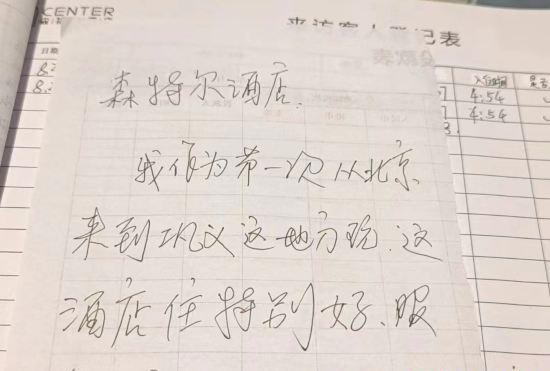 CENTER
来访客人登记表
日期
8.
8.
4:54
4:54
森特尔酒店.
我作为第一次从北京
来到巩义这地方玩.这
酒店住特别好、服